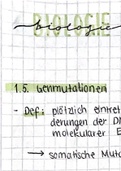 BIOLOGIE
biologie
1.5. Genmutationen
- Def: plötzlich eintret
derungen der DN
molekularer E
→ somatische Muta